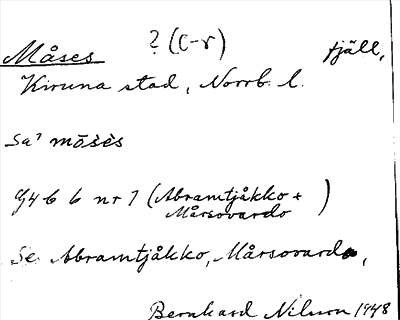 Måses ? (c-r) fjäll,
Kiruna stad, Norrb. l.
Sa? mōsès
G4 6 b nr 1 (Abramtjåkko +
Mårsovardo )
Se Abramtjåkko, Mårsovardo,
Bernhard Nilsson 1948